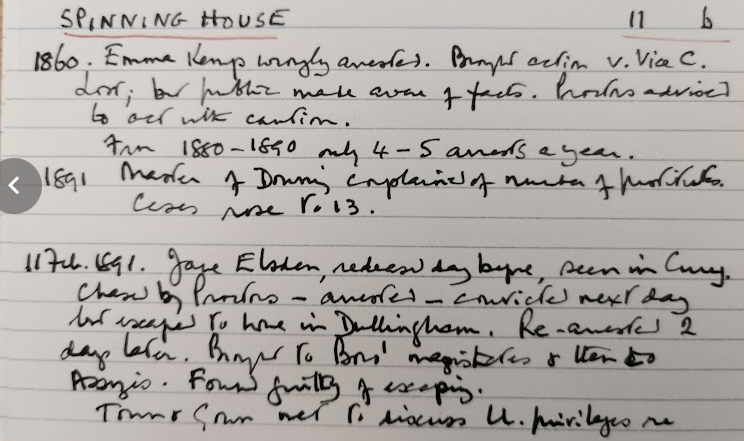 SPINNING HOUSE 11 b
1860. Emma Kemp wrongly arrested. Brought action v. Vice C.
Lost; but public made aware of facts. Proctors advised
to act with caution.
From 1880-1890 only 4-5 arrests a year.
1891 Master of Downing complained of number of prostitutes.
Cases rose to 13.
11 Feb. 1891. Jane Elsden, released day before, seen in Cury.
Chased by Proctors - arrested - convicted next day
but escaped to home in Dullingham. Re-arrested 2
days later. Brought to Boro' magistrates & then to
Assizes. Found guilty of escaping.
Town & Gown met to discuss U. privileges re